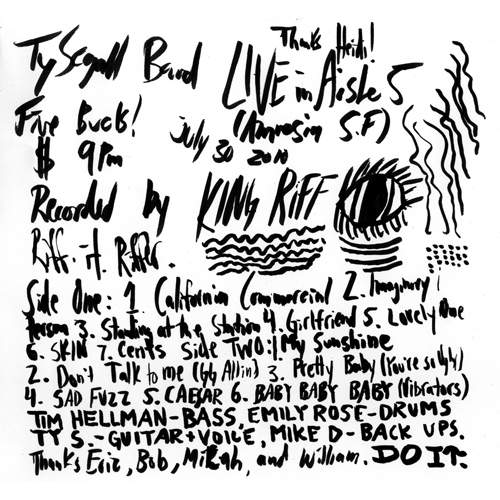 Thanks Heidi!
Ty Segall Band LIVE in Aisle 5
Five Bucks! (Amnesia S.F)
$ 9 Pm July 30 2010
Recorded by KING RIFF
Riff. it. Riffer.
Side One: 1. California Commercial 2. Imaginary
Person 3. Standing at the Station 4. Girlfriend 5. Lovely One
6. SKIN 7. Cents Side TWO: 1 My Sunshine
2. Don't Talk to me (GG Allin) 3. Pretty Baby (You're so Ugly)
4. SAD FUZZ 5. CAESAR 6. BABY BABY BABY (Vibrators)
TIM HELLMAN-BASS. EMILY ROSE-DRUMS
TY S.-GUITAR+VOICE, MIKE D-BACK UPS.
Thanks Eric, Bob, Mikah, and William. DO IT.